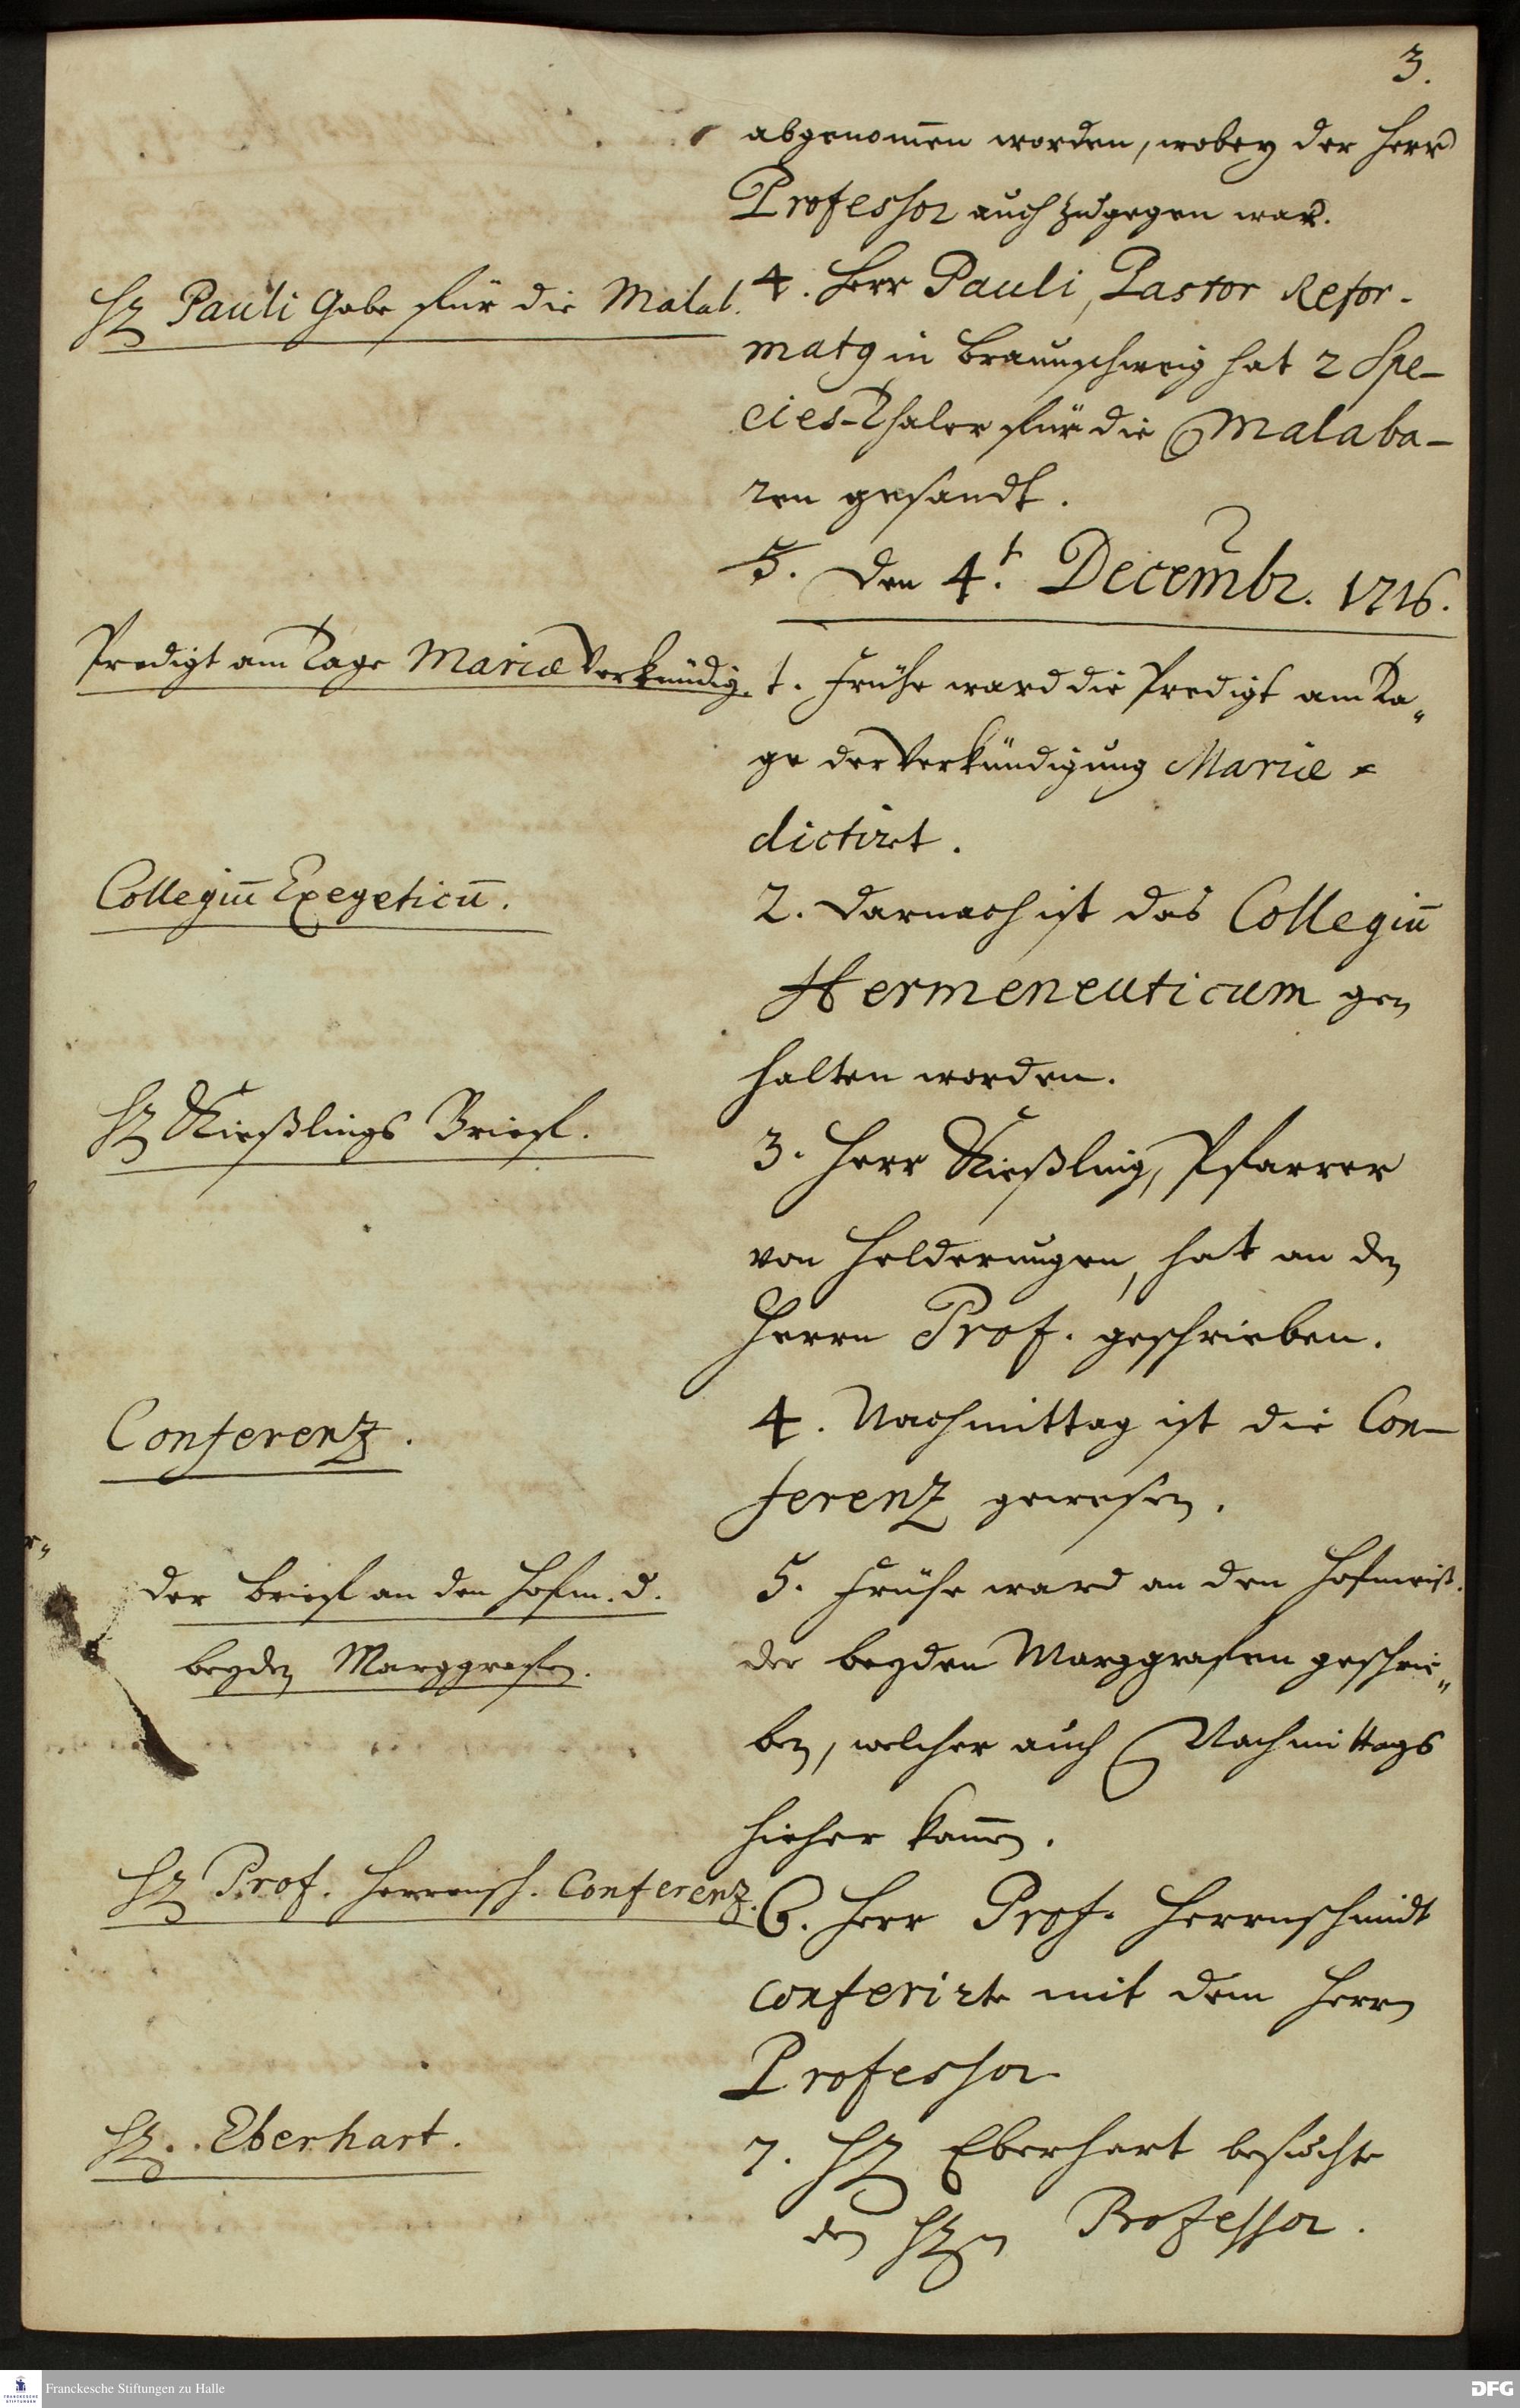 3.
abgenom̅en worden, wobey der Herr
Professor auch zugegen war.
H. Pauli Gabe für die Malab.
4. Herr Pauli, Pastor Refor-
matq in Braunschweig hat 2 Spe-
cies-Thaler für die Malaba-
ren gesandt.
5. Den 4.t Decembr. 1716.
Predigt am Tage Mariæ Verkündig.
1. Frühe ward die Predigt am Ta„
ge der Verkündigung Mariæ
dictirt.
Collegiu̅ Exegeticu̅.
2. Darnach ist das Collegiu̅
Hermeneuticum ge
halten worden.
H. Kießlings Brief.
3. Herr Kießling, Pfarrer
von Helderungen, hat an den
Herrn Prof. geschrieben.
Conferenz.
4. Nachmittag ist die Con-
ferenz gewesen.
der Brief an den Hofm. d.
beyden Marggrafen.
5. Frühe ward an den Hofmeist.
der beyden Marggrafen geschrie„
ben, welcher auch Nachmittags
hieher kam̅en.
H. Prof. Herrensch. Conferenz.
6. Herr Prof. Herrnschmidt
conferirte mit dem Herrn
Professor
H. Eberhart.
7. H. Eberhart besuchte
den H.n Professor.
Franckesche Stiftungen zu Halle
DFG